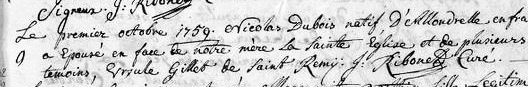 Signeux. J. Ribonet
Le premier octobre 1759. Nicolas Dubois natif D'Allondrelle en fra
a Epousé en face de notre mere La Sainte Eglise et de plusieurs
temoins, Ursule Gillet de Saint Remy. J. Ribonet Cure.